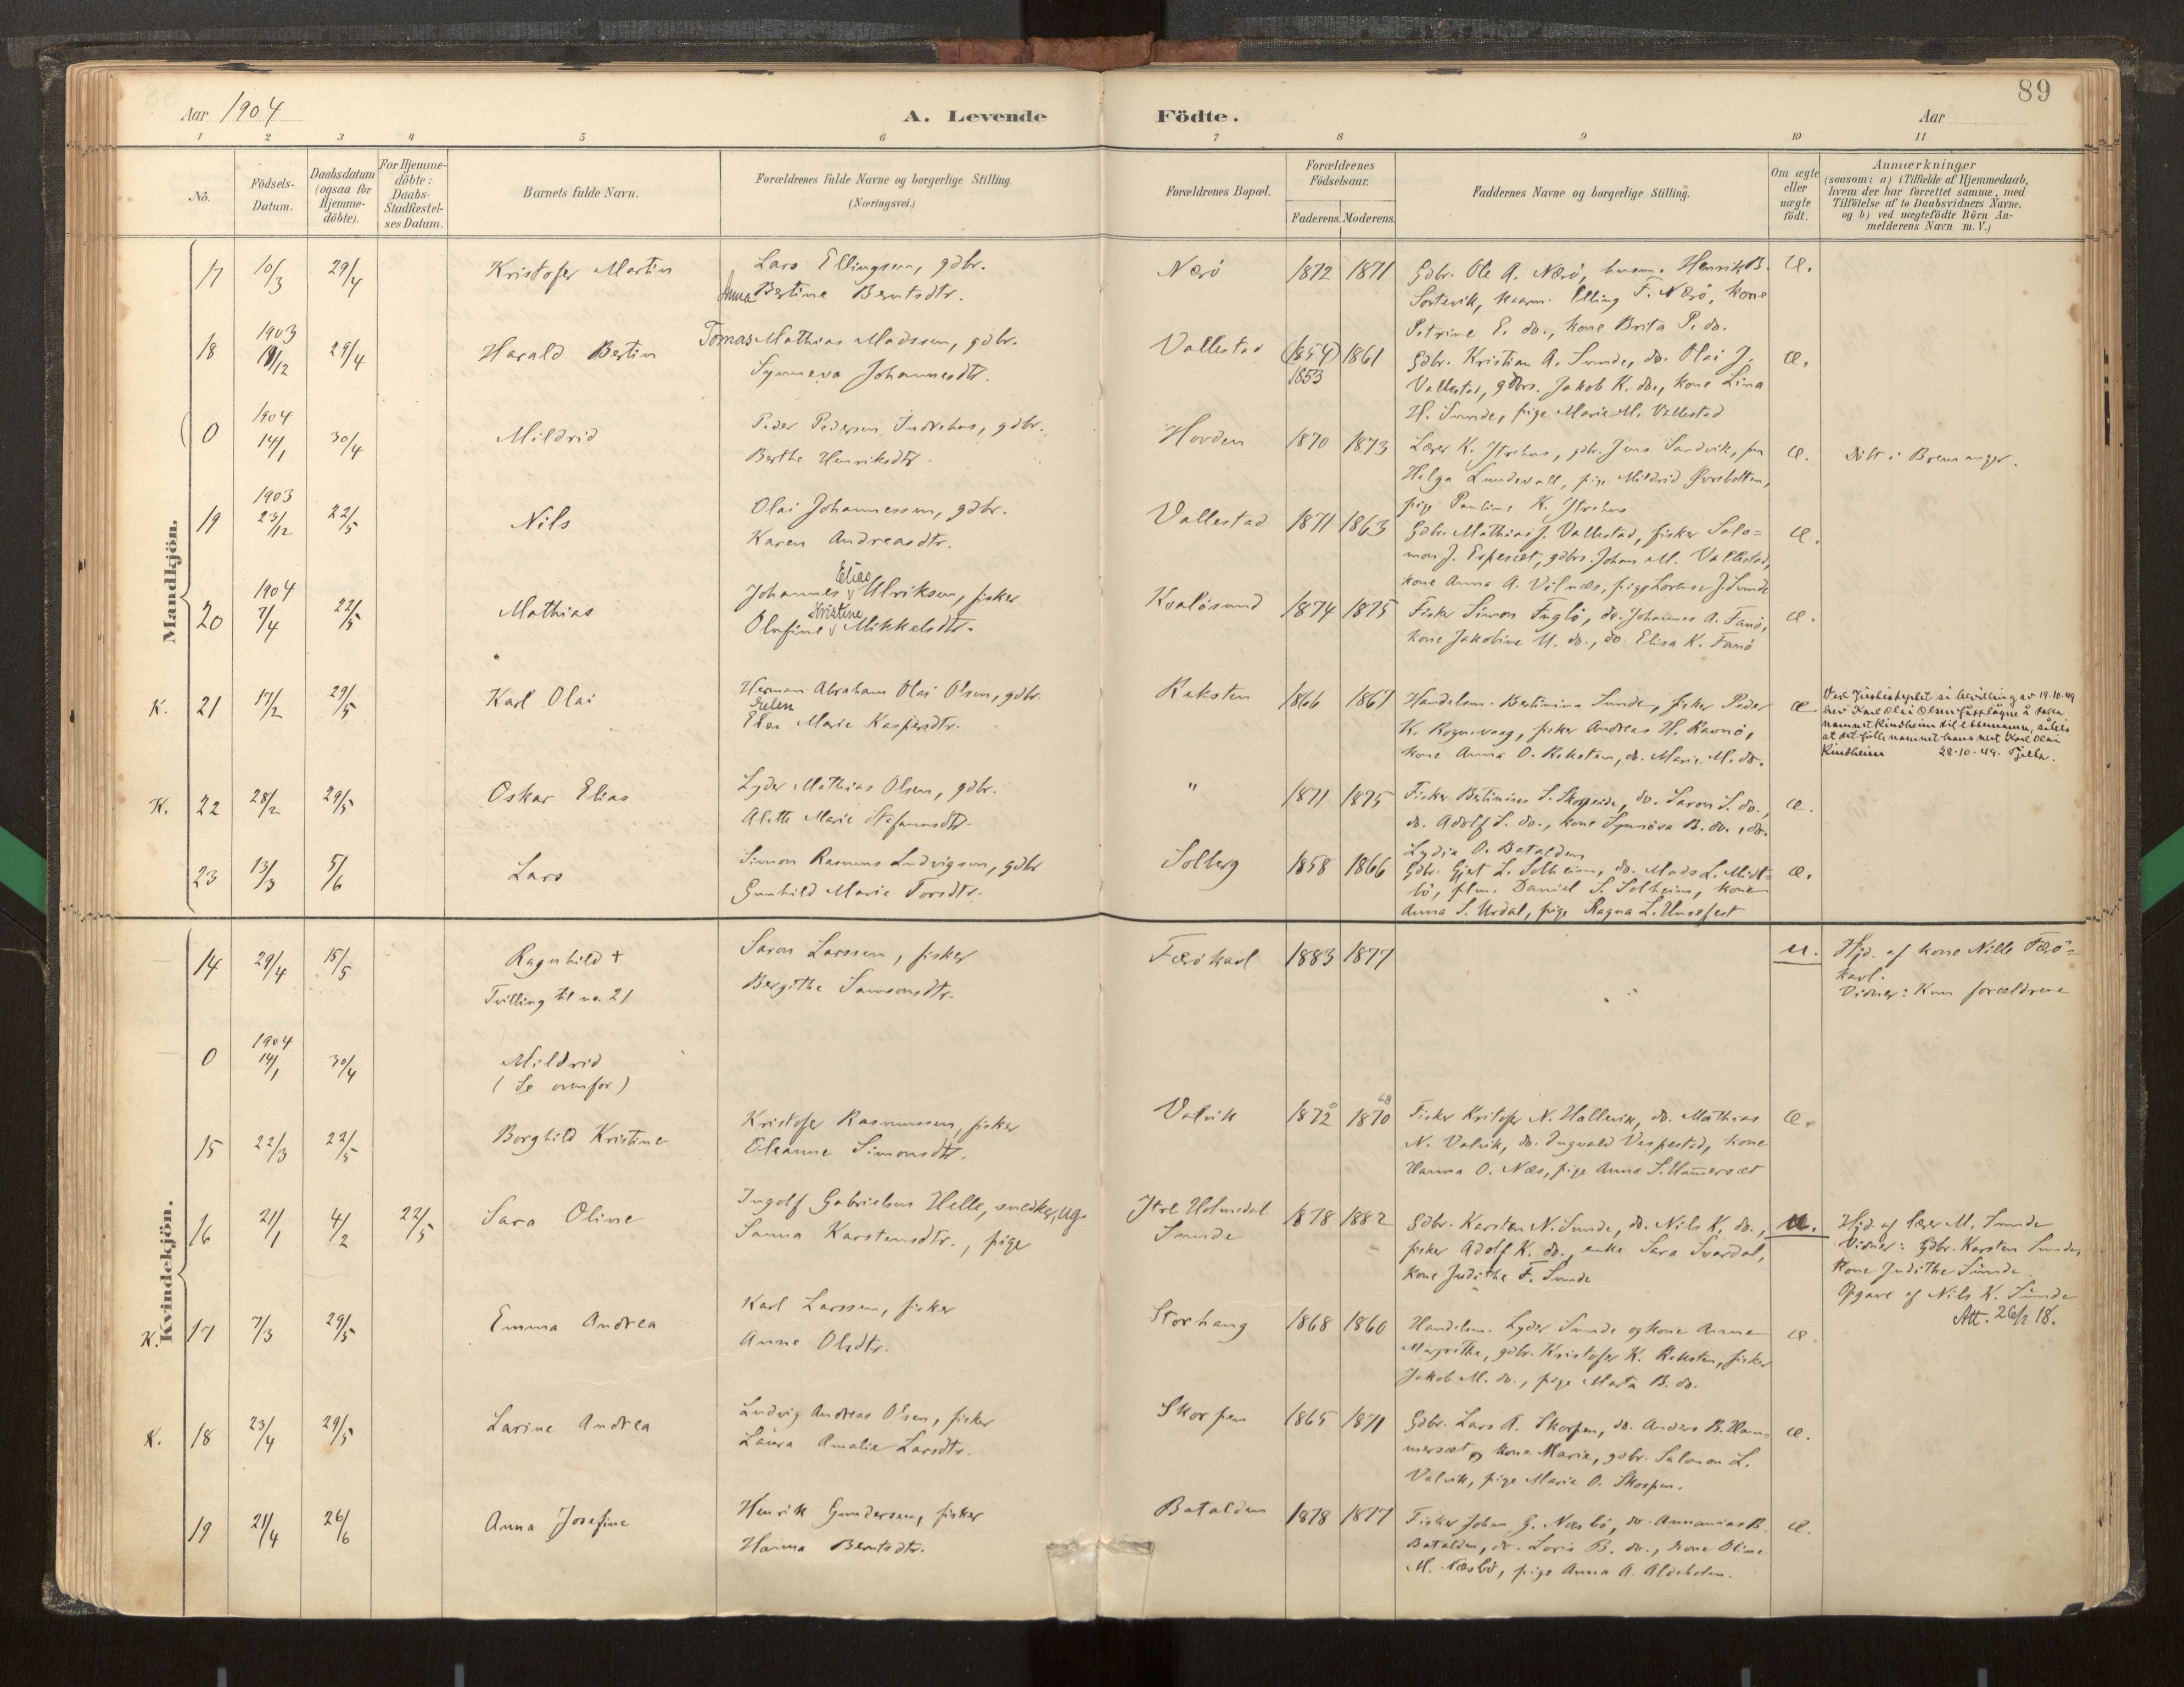 89
Aar 1904
A. Levende Födte.
Aar
1 2 3 4 5 6 7 8 9 10 11
No.
Födsels-Datum.
Daabsdatum (ogsaa for Hjemme-döbte).
For Hjemme-döbte: Daabs-Stadfæstel-ses Datum.
Barnets fulde Navn.
Forældrenes fulde Navne og borgerlige Stilling.
(Næringsvei.)
Forældrenes Bopæl.
Forældrenes Födselsaar.
Faderens. Moderens.
Faddernes Navne og borgerlige Stilling.
Om ægte eller uægte födt.
Anmærkninger
(saasom: a) i Tilfælde af Hjemmedaab,
hvem der har forrettet samme, med
Tilföielse af to Daabsvidners Navne,
og b) ved uægtefödte Börn An-
melderens Navn m.V.)
Mandkjön.
17 10/3 29/4 Kristofer Martin
Lars Ellingsen, gdbr.
Anna Bertine Berntsdtr.
Nærö 1872 1871
Gdbr. Ole A. Nærö, Henrik B.
Sortevik, Elling F. Nærö, kone
Petrine E. do., kone Brita P. do.
Æ.
18 1903 18/12 29/4 Harald Bertin
Tomas Mathias Madssen, gdbr.
Synneva Johannesdtr.
Vallestad (1854) 1853 1861
Gdbr. Kristian A. Sunde, do. Olai J.
Vallestad, gdbrs. Jakob K. do., kone Lina
H. Sunde, pige Marie M. Vallestad
Æ.
0 1904 14/1 30/4 Mildrid
Peder Pedersen Indrehus, gdbr.
Berthe Henriksdtr.
Hovden 1870 1873
Lærer K. Ytrehus, gdbr. Jens Sandvik, fru
Helga Lundevall, pige Mildrid Øvrebotten,
pige Pauline K. Ytrehus
Æ. Döbt i Bremanger.
19 1903 23/12 22/5 Nils
Olai Johannessen, gdbr.
Karen Andreasdtr.
Vallestad 1871 1863
Gdbr. Mathias J. Vallestad, fisker Salo=
mon J. Espeset, gdbrs. Johan M. Vallestad,
kone Anna A. Vilnæs, pige J. Sunde
Æ.
20 1904 7/4 22/5 Mathias
Johannes Elias Ulriksen, fisker
Olufine Kristine Mikkelsdtr.
Kvalösund 1874 1875
Fisker Simon Fuglö, do. Johannes A. Fanö,
kone Jakobine U. do., do. Elisa K. Fanö
Æ.
K. 21 17/2 29/5 Karl Olai
Herman Abraham Olai Olsen, gdbr.
Helen
Elen Marie Kaspersdtr.
Reksten 1866 1867
Handelsm. Bertinius Sunde, fisker Peder
K. Rognsvaag, fisker Andreas H. Ravnö,
kone Anna O. Reksten, do. Marie M. do.
Æ
Ved Justisdeptet si løyving av 19.10.49
hev Karl Olai Olsen fått løyve å taka
namnet Rindheim til ettenamn, såleis
at det fulle namnet hans vert Karl Olai
Rindheim 28.10.49.
K. 22 28/2 29/5 Oskar Elias
Lyder Mathias Olsen, gdbr.
Alette Marie Stefansdtr.
" 1871 1875
Fisker Bertinius S. Skorpeide, do. Saron S. do.,
do. Adolf S. do., kone Synnöva B. do., do.
Lydia O. Batalden
Æ.
23 13/3 5/6 Lars
Simon Rasmus Ludvigsen, gdbr
Gunhild Marie Torsdtr.
Solberg 1858 1866
Gdbr. Gjert L. Solheim, do. Mads L. Midt=
bö, Daniel S. Solheim, kone
Anna S. Urdal, pige Ragna L. Husefest
Æ.
Kvindekjön.
14 29/4 15/5 Ragnhild +
Tvilling til no. 21
Saron Larssen, fisker
Bergithe Samsonsdtr.
Færökarl 1883 1877
u.
Hjd. af kone Nille Færö=
karl.
Vidner: Kun forældrene
0 1904 14/1 30/4 Mildrid
(Se ovenfor)
15 22/3 22/5 Borghild Kristine
Kristofer Rasmussen, fisker
Oleanne Simonsdtr.
Valvik 1872 1870 68
Fisker Kristofer N. Hallevik, do. Mathias
N. Valvik, do. Ingvald Vespestad, kone
Hanna O. Næs, pige Anna S. Hammerset
Æ.
16 21/1 4/2 22/5 Sara Oline
Ingolf Gabrielsen Helle, snedker, ug.
Sanna Karstensdtr., pige
Ytre Holmedal
Sunde
1878 1882
Gdbr. Karsten N. Sunde, do. Nils K. do.,
fisker Adolf K. do., enke Sara Svardal,
kone Judithe F. Sunde
u.
Hjd. af lærer M. Sunde
Vidner: Gdbr. Karsten Sunde,
kone Judithe Sunde
Opgave af Nils K. Sunde
Att. 26/2 18.
K. 17 7/3 29/5 Emma Andrea
Karl Larssen, fisker
Anne Olsdtr.
Storhaug 1868 1860
Handelsm. Lyder Sunde og kone Anna
Margrethe, gdbr. Kristofer K. Reksten, fisker
Jakob M. do., pige Marta B. do.
Æ
K. 18 23/4 29/5 Larine Andrea
Ludvig Andreas Olsen, fisker
Laura Amalie Larsdtr.
Skorpen 1865 1871
Gdbr. Lars A. Skorpen, do. Anders B. Ham=
merset og kone Marie, gdbr. Salomon L.
Valvik, pige Marie O. Skorpen.
Æ.
19 21/4 26/6 Anna Josefine
Henrik Gundersen, fisker
Hanna Berntsdtr.
Batalden 1878 1877
Fisker Johan G. Næsbö, do. Annanias B.
Batalden, do. Loris B. do., kone Oline
M. Næsbö, pige Anna A. Aldeholm.
Æ.